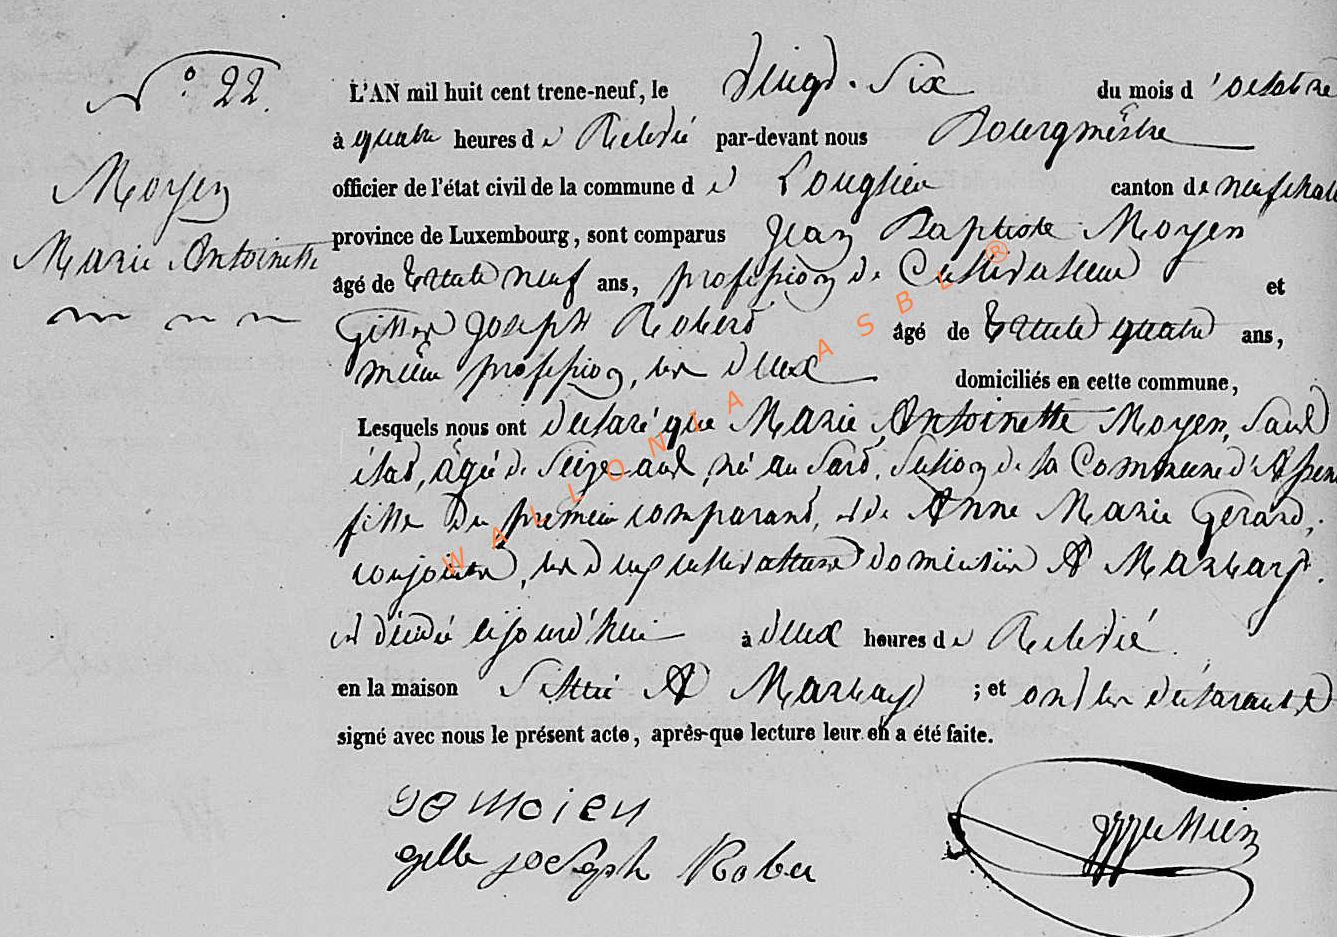 N° 22.
Moyen
Marie Antoinette
L'AN mil huit cent trene-neuf, le vingt-Six du mois d'octobre
à quatre heures de Relevé par-devant nous Bourgmestre
officier de l'état civil de la commune de Longlier canton de neufchate
province de Luxembourg, sont comparus Jean Baptiste Moyen
âgé de trente neuf ans, profession de Cultivateur et
Gille Joseph Robert âgé de trente quatre ans,
même profession, les deux domiciliés en cette commune,
Lesquels nous ont déclaré que Marie Antoinette Moyen, Sans
état, âgée de Seize ans, né au Sart, Section de la Commune d'Assen
fille du premier comparant, et de Anne Marie Gerard,
conjoints, les deux cultivateurs domiciliés A Marbay.
est décédé cejourd'hui à deux heures de Relevé.
en la maison Sittué A Marbay ; et ont les déclarants
signé avec nous le présent acte, après-que lecture leur en a été faite.
moien
gille joseph Rober
WALLONIA ASBL ®